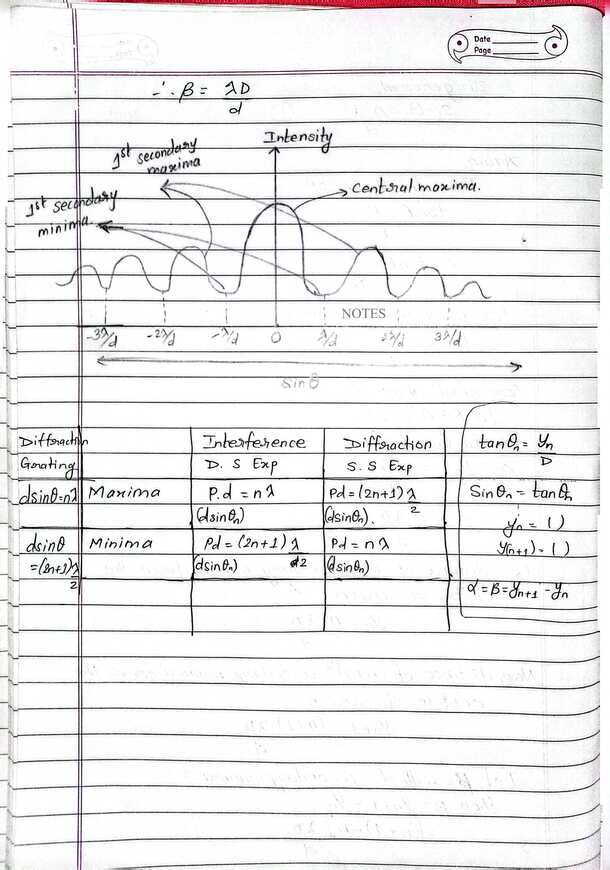 Date
Page
∴ β = λD/d
Intensity
1st secondary
maxima
central maxima.
1st secondary
minima.
NOTES
-3λ/d -2λ/d -λ/d 0 λ/d 2λ/d 3λ/d
Sin θ
Diffraction Grating | | Interference D. S Exp | Diffraction S. S Exp
dsinθ=nλ | Maxima | P.d = nλ (dsinθn) | Pd=(2n+1)λ/2 (dsinθn).
dsinθ =(2n+1)λ/2 | Minima | Pd=(2n+1)λ/2 (dsinθn) | Pd=nλ (dsinθn)
tanθn = yn/D
Sinθn = tanθn
yn = ( )
y(n+1) = ( )
α = β = yn+1 - yn